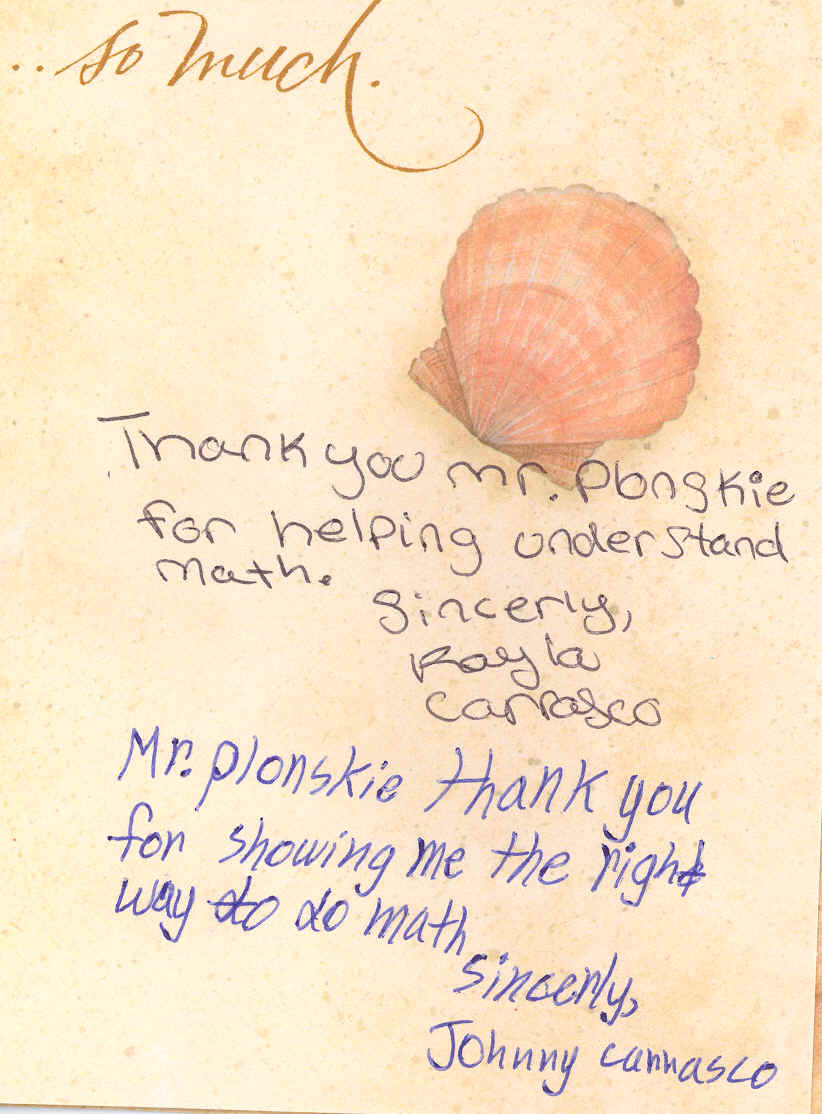 ..so much.
Thank you mr. Plonskie
for helping understand
math.
Sincerly,
Kayla
Carrasco
Mr. Plonskie thank you
for showing me the right
way to do math
sincerly,
Johnny carrasco